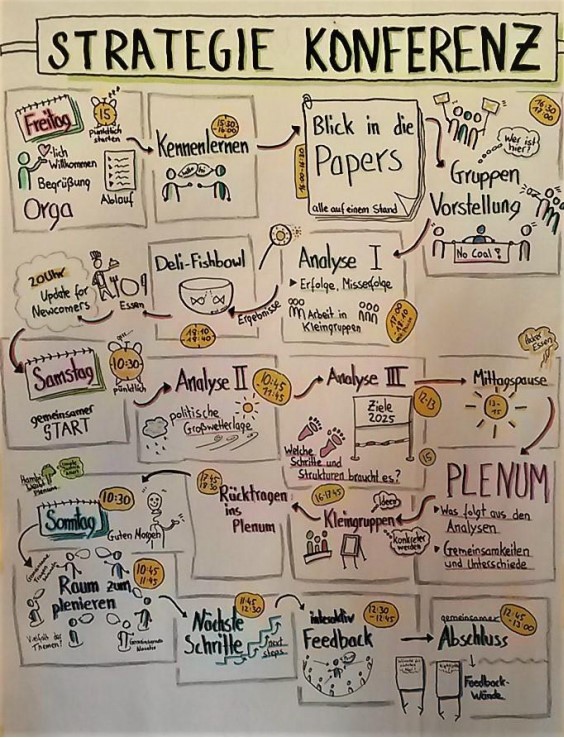 STRATEGIE KONFERENZ
Freitag
15
pünktlich
starten
-lich
Willkommen
Begrüßung
Orga
Ablauf
15:30
-16:00
Kennenlernen
Blick in die
Papers
alle auf einem Stand
16:30
-17:00
Wer ist
hier?
Gruppen
Vorstellung
No Coal!
Analyse I
Erfolge, Misserfolge
Arbeit in
Kleingruppen
17:00
-18:10
Ergebnisse
Deli-Fishbowl
18:10
-18:40
Essen
20 Uhr
Update für
Newcomers
Samstag
10:30
pünktlich
gemeinsamer
START
Analyse II
10:45
-11:45
politische
Großwetterlage
Analyse III
12-13
Ziele
2025
Welche
Schritte und
Strukturen braucht es?
Mittagspause
13-
15
Essen
15
PLENUM
Was folgt aus den
Analysen
Gemeinsamkeiten
und Unterschiede
16-17:45
Ideen
Kleingruppen
Konkreter
werden
17:45
Rücktragen
ins
Plenum
Sonntag
10:30
Guten Morgen
Raum zum
plenieren
10:45
-11:45
Vielfalt der
Themen!
11:45
-12:30
Nächste
Schritte
next
steps
interaktiv
Feedback
12:30
-12:45
gemeinsamer
Abschluss
12:45
-13:00
Feedback-
Wände